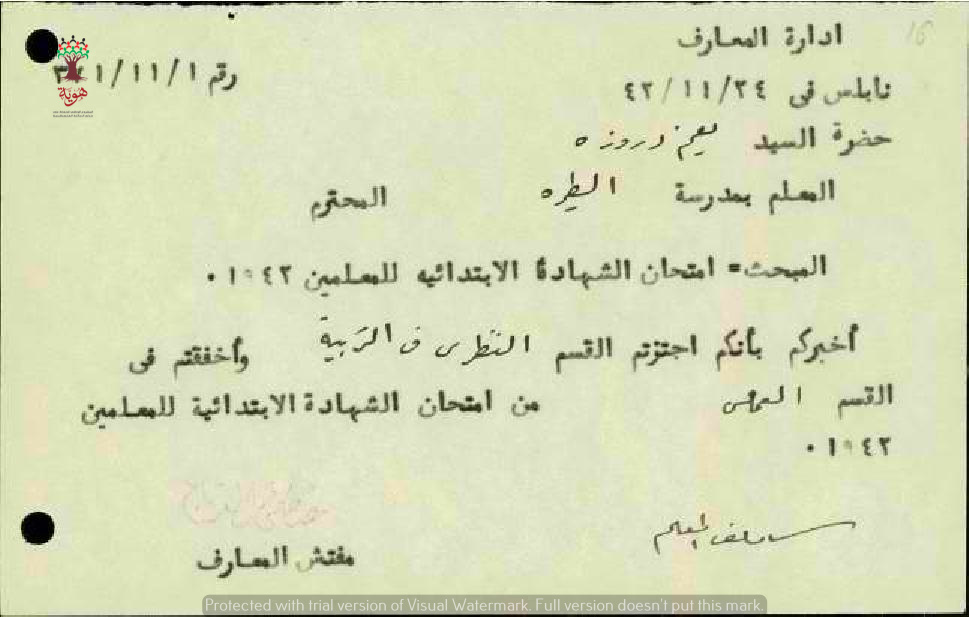 ادارة المعارف
نابلس فى ٢٤/١١/٤٢
رقم ١/١١/١
حضرة السيد دروزه
المعلم بمدرسة المحترم
المبحث= امتحان الشهادة الابتدائيه للمعلمين ١٩٤٢٠
أخبركم بأنكم اجتزتم القسم النظرى فى التربية وأخفقتم فى
القسم العملى من امتحان الشهادة الابتدائية للمعلمين
١٩٤٢٠
ملف المعلم
مفتش المعارف
هوية
16
Protected with trial version of Visual Watermark. Full version doesn't put this mark.